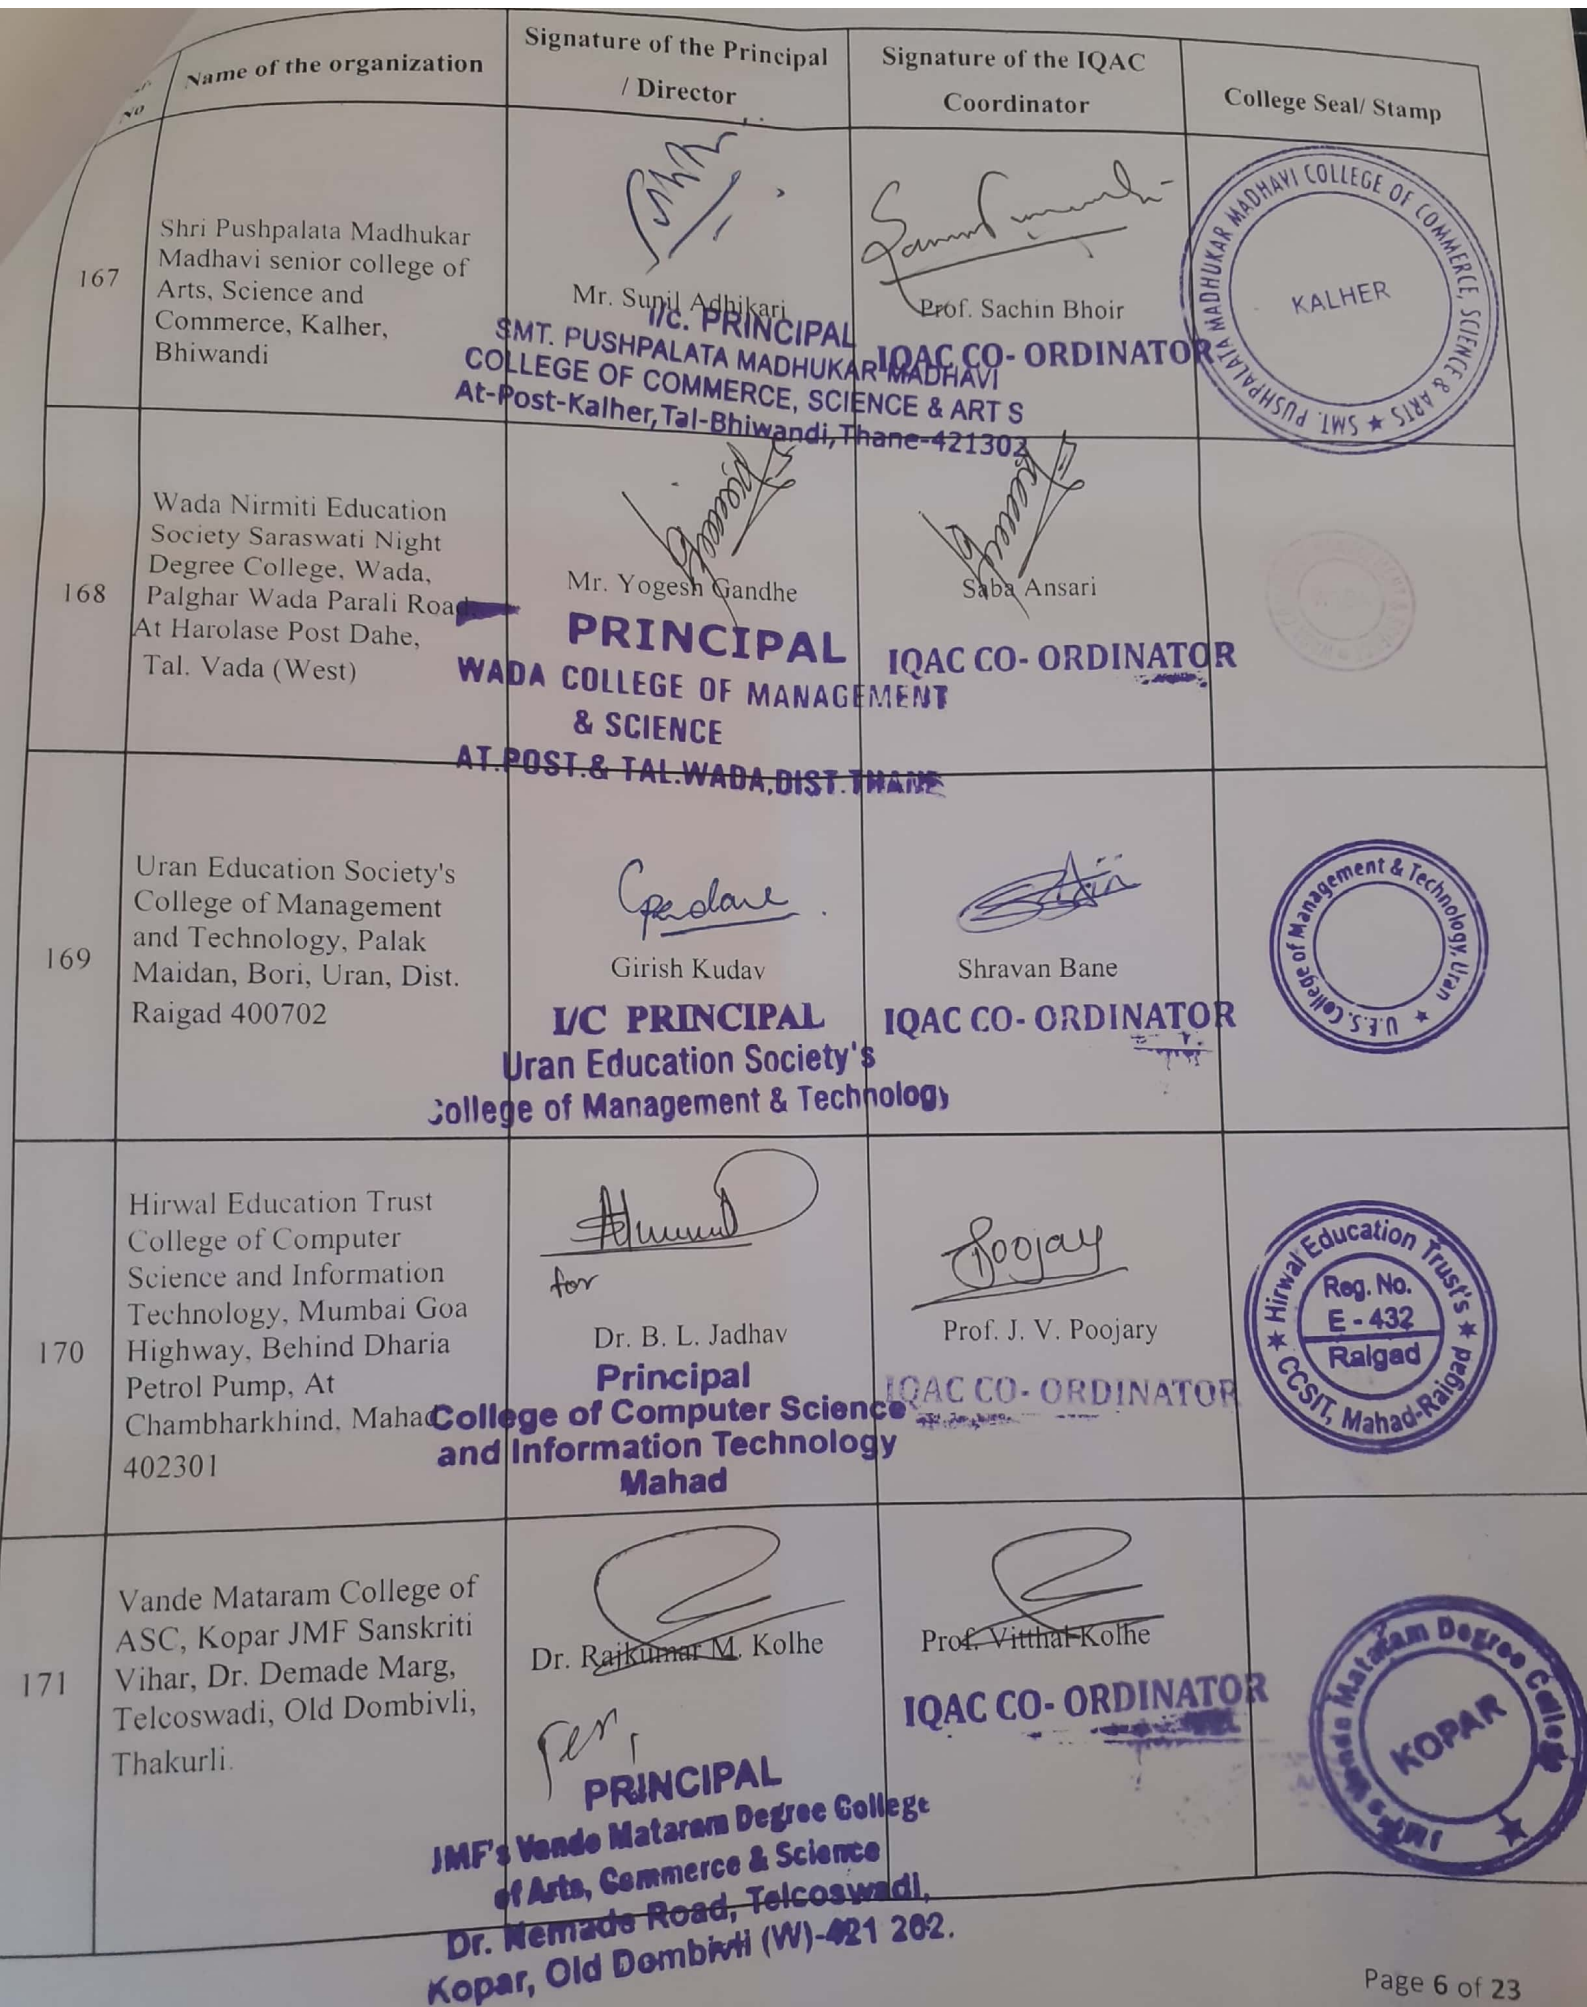 No
Name of the organization
Signature of the Principal
/ Director
Signature of the IQAC
Coordinator
College Seal/ Stamp
167
Shri Pushpalata Madhukar
Madhavi senior college of
Arts, Science and
Commerce, Kalher,
Bhiwandi
Mr. Sunil Adhikari
I/c. PRINCIPAL
SMT. PUSHPALATA MADHUKAR MADHAVI
COLLEGE OF COMMERCE, SCIENCE & ART S
At-Post-Kalher, Tal-Bhiwandi, Thane-421302
Prof. Sachin Bhoir
IQAC CO- ORDINATOR
SMT. PUSHPALATA MADHUKAR MADHAVI COLLEGE OF COMMERCE, SCIENCE & ARTS ★
KALHER
168
Wada Nirmiti Education
Society Saraswati Night
Degree College, Wada,
Palghar Wada Parali Road
At Harolase Post Dahe,
Tal. Vada (West)
Mr. Yogesh Gandhe
PRINCIPAL
WADA COLLEGE OF MANAGEMENT
& SCIENCE
AT.POST.& TAL.WADA,DIST.THANE
Saba Ansari
IQAC CO- ORDINATOR
169
Uran Education Society's
College of Management
and Technology, Palak
Maidan, Bori, Uran, Dist.
Raigad 400702
Girish Kudav
I/C PRINCIPAL
Uran Education Society's
College of Management & Technology
Shravan Bane
IQAC CO- ORDINATOR
U.E.S. College of Management & Technology, Uran ★
170
Hirwal Education Trust
College of Computer
Science and Information
Technology, Mumbai Goa
Highway, Behind Dharia
Petrol Pump, At
Chambharkhind, Mahad
402301
for
Dr. B. L. Jadhav
Principal
College of Computer Science
and Information Technology
Mahad
Poojay
Prof. J. V. Poojary
IQAC CO- ORDINATOR
★ Hirwal Education Trust's ★
CCSIT, Mahad-Raigad
Reg. No.
E - 432
Raigad
171
Vande Mataram College of
ASC, Kopar JMF Sanskriti
Vihar, Dr. Demade Marg,
Telcoswadi, Old Dombivli,
Thakurli.
Dr. Rajkumar M. Kolhe
PRINCIPAL
JMF's Vande Mataram Degree College
of Arts, Commerce & Science
Dr. Nemade Road, Telcoswadi,
Kopar, Old Dombivli (W)-421 202.
Prof. Vitthal Kolhe
IQAC CO- ORDINATOR
JMF's Vande Mataram Degree College ★
KOPAR
Page 6 of 23